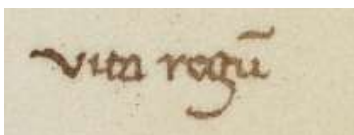 vita regū